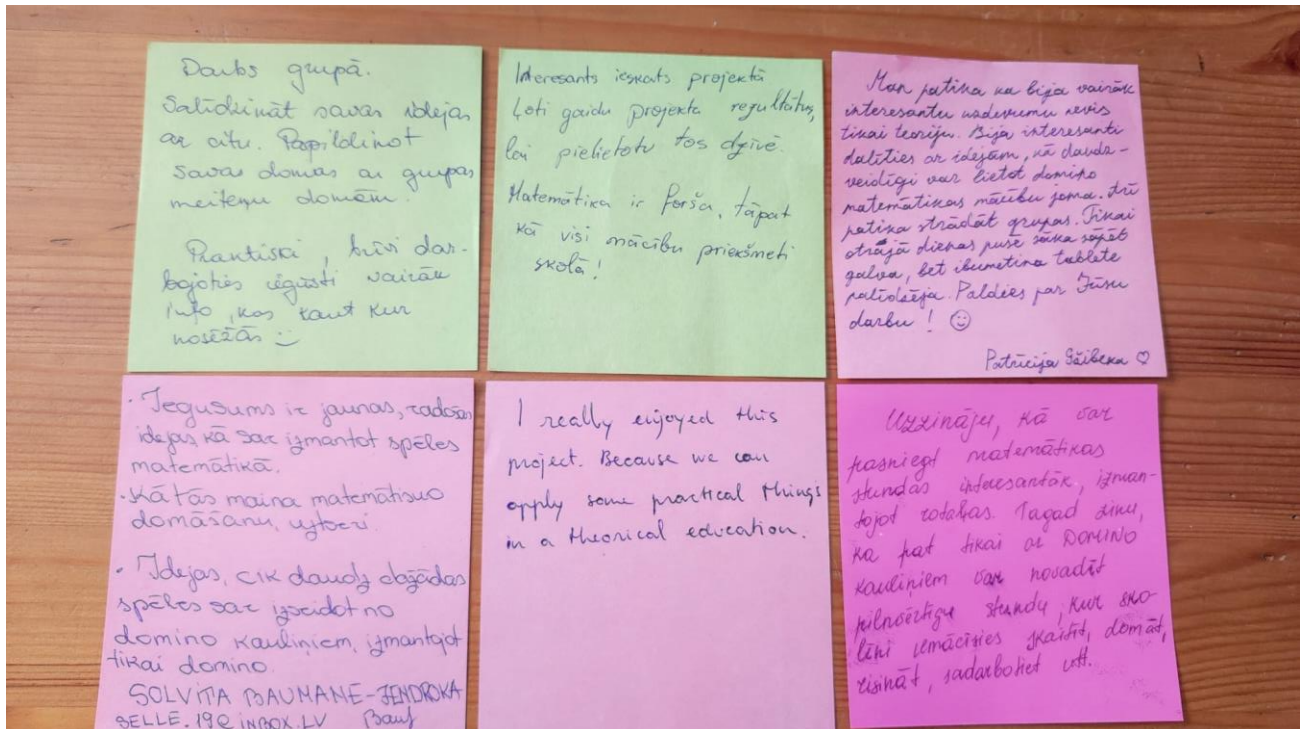 Darbs grupā.
Salīdzināt savas idejas
ar citu. Papildinot
savas domas ar grupas
meiteņu domām.
Praktiski, brīvi dar-
bojoties iegūsti vairāk
info, kas kaut kur
nosēžās :)
Interesants ieskats projektā
Ļoti gaidu projekta regultātus,
lai pielietotu tos dzīvē.
Matemātika ir forša, tāpat
kā visi mācību priekšmeti
skolā!
Man patika ka bija vairāk
interesantu uzdevumu nevis
tikai teoriju. Bija interesanti
dalīties ar idejām, kā daudz-
veidīgi var lietot domino
matemātikas mācību joma. Arī
patika strādāt grupas. Tikai
otrajā dienas pusē sāka sāpēt
galva, bet ibumetina tablete
palīdzēja. Paldies par Jūsu
darbu! ☺
Patrīcija ♡
· Ieguvums ir jaunas, radošas
idejas kā var izmantot spēles
matemātikā.
· Kā tās maina matemātisko
domāšanu, uztveri.
· Idejas, cik daudz dažādas
spēles var izveidot no
domino kauliņiem, izmantojot
tikai domino.
SOLVITA BAUMANE-JENDROKA
BELLE.19@INBOX.LV
I really enjoyed this
project. Because we can
apply some practical things
in a theorical education.
Uzzināju, kā var
pasniegt matemātikas
stundas interesantāk, izman-
tojot rotaļas. Tagad zinu,
ka pat tikai ar DOMINO
kauliņiem var novadīt
pilnvērtīgu stundu, kur sko-
lēni iemācīsies skaitīt, domāt,
risināt, sadarboties utt.